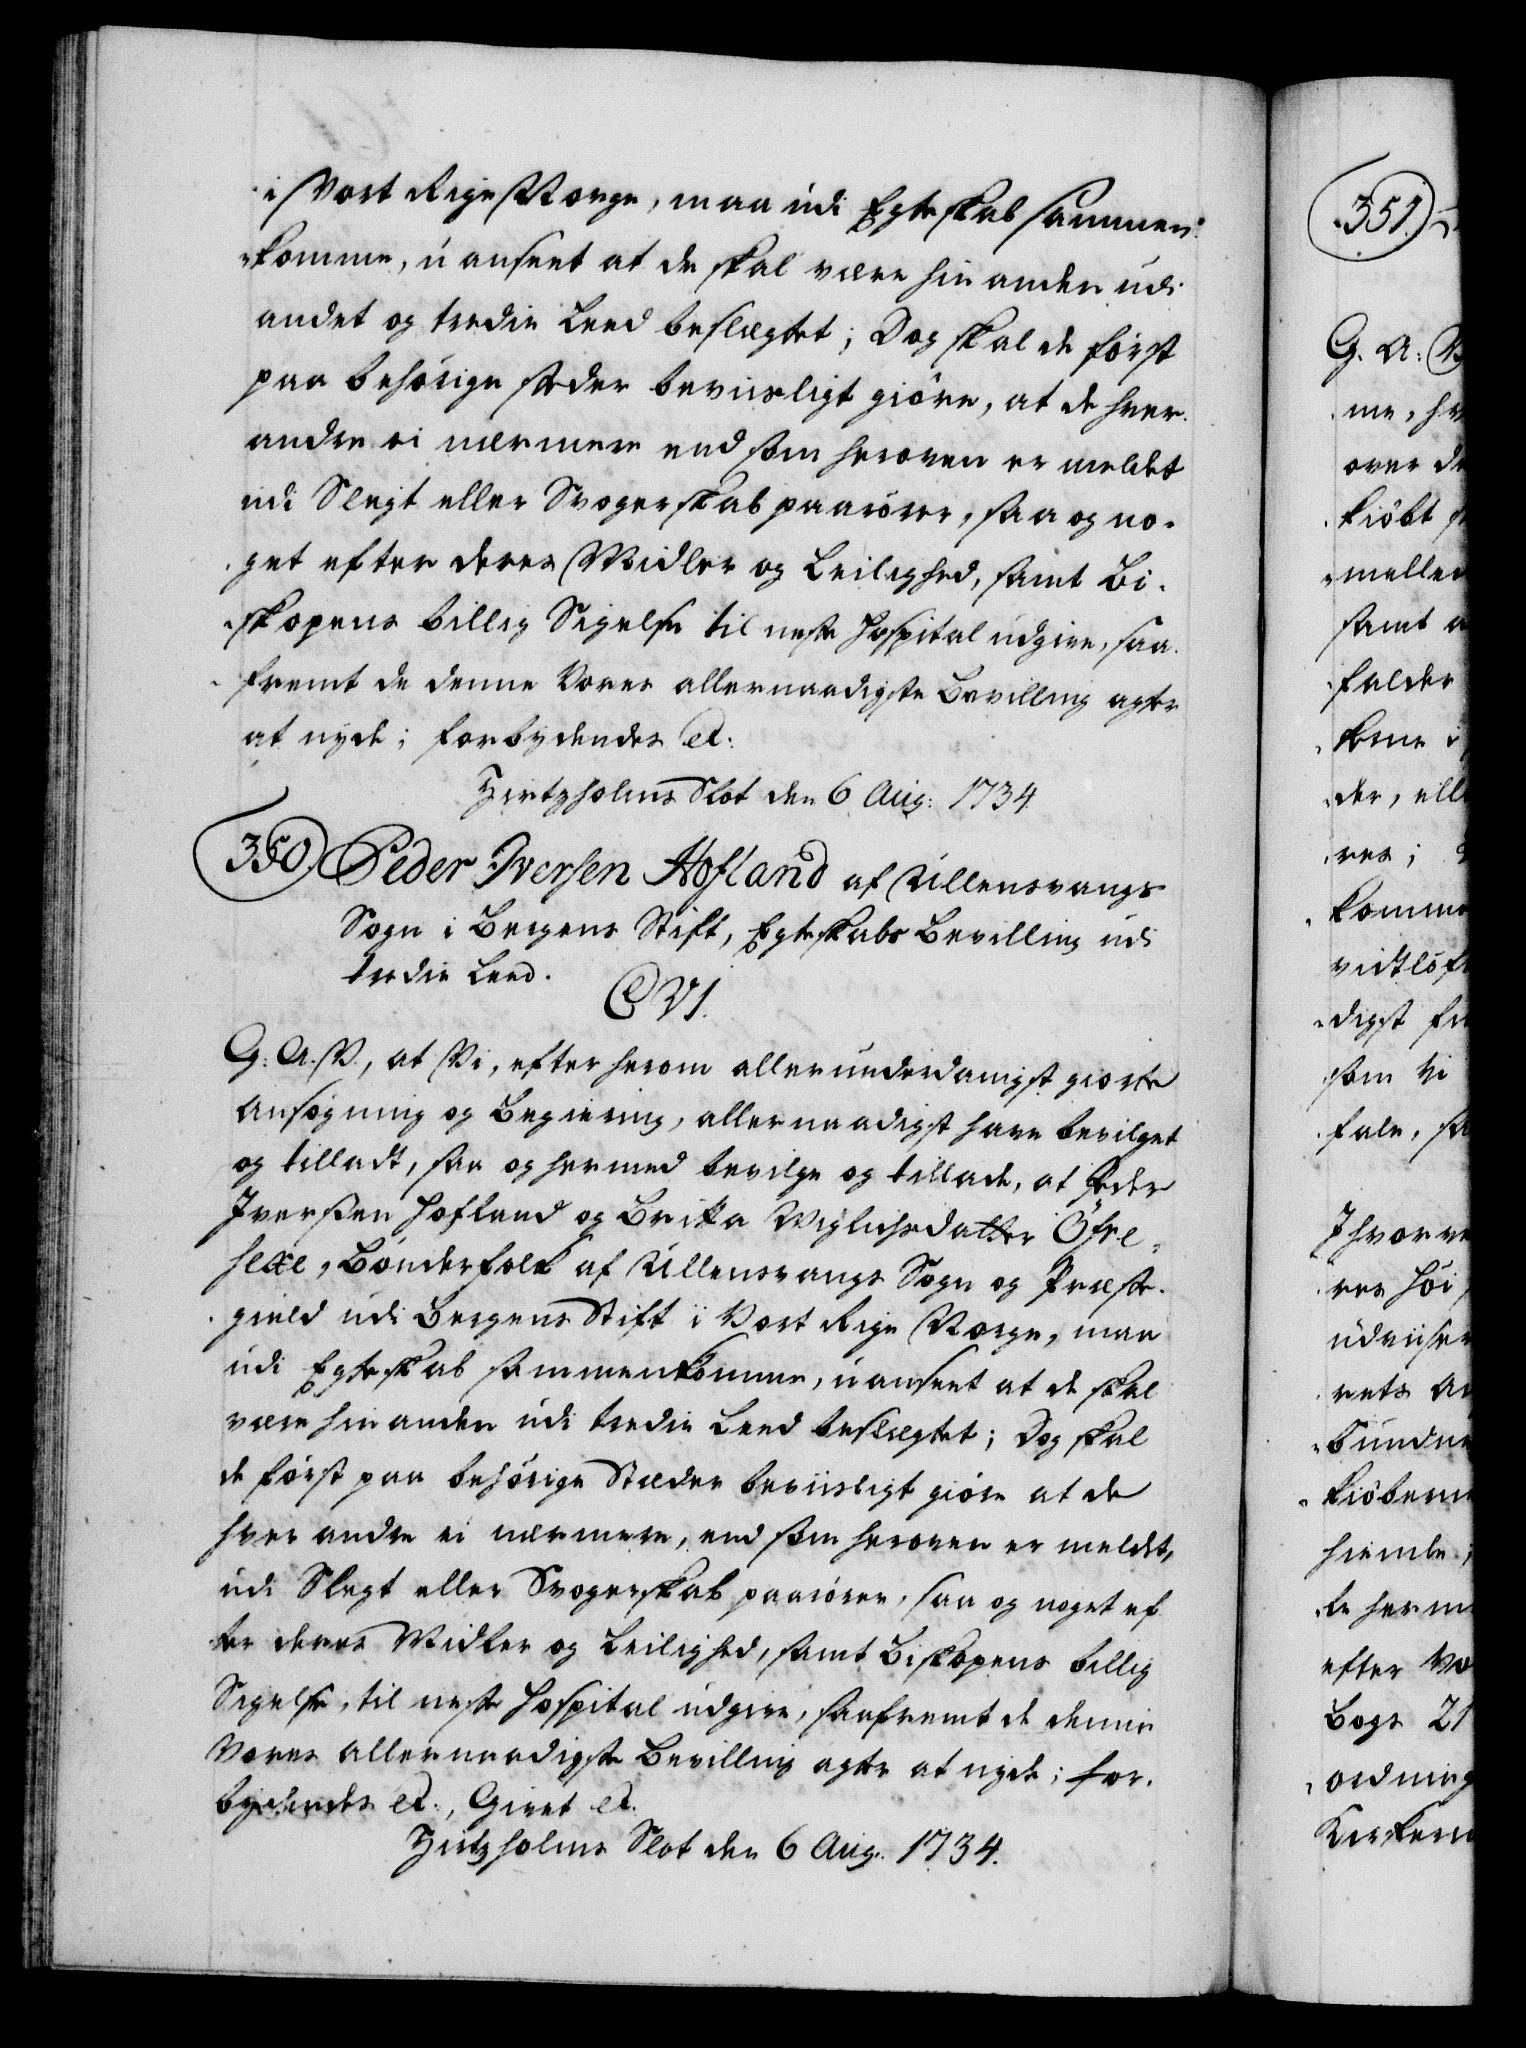 i Vort Rige Norge, maa udi Egteskab sammen-
komme, uanseet at de skal være hinanden udi
andet og tredie Leed beslægtet; Dog skal de først
paa behørige stæder beviisligt giøre, at de hver-
andre ei nærmere end som heroven er meldet
udi Slegt eller Svogerskab paarører, saa og no-
get efter deres Midler og Leilighed, samt Bi-
skopens billig Sigelse til neste Hospital udgive, saa-
fremt de denne Vores allernaadigste Bevilling agter
at nyde; forbydendes et.
Hirtzholms Slot den 6 Aug: 1734
350. Peder Iversen Hofland af Ullensvangs
Sogn i Bergens Stift, Egteskabs Bevilling udi
tredie Leed.
C VI.
G. A. V., at Vi, efter herom allerunderdanigst giorte
Ansøgning og Begiering, allernaadigst have bevilget
og tilladt, saa og hermed bevilge og tillade, at Peder
Iverssen Hofland og Britta Viglichsdatter Öfre-
hexe, Bønderfolk af Ullensvangs Sogn og Præste-
gield udi Bergens Stift i Vort Rige Norge, maa
udi Egteskab sammenkomme, uanseet at de skal
være hinanden udi tredie Leed beslægtet; Dog skal
de først paa behørige Stæder beviisligt giøre at de
hver andre ei nærmere, end som heroven er meldet,
udi Slegt eller Svogerskab paarører, saa og noget ef
ter deres Midler og Leilighed, samt Biskopens billig
Sigelse, til neste Hospital udgive, saafremt de denne
Vores allernaadigste Bevilling agte at nyde; for-
bydendes et., Givet et.
Hirtzholms Slot den 6 Aug. 1734.
351.
G. A. V
me, hv
over de
kiøbt
mellem
samt a
falder
kone i
der, ell
res;
komme
vidtløft
digst fu
som Vi
fale, sa
I hvor ve
res høi
udviiser
rets A
bunden
kiøberne
hiemle;
te herm
efter Vo
Bogs 21
ordning
Kirkern